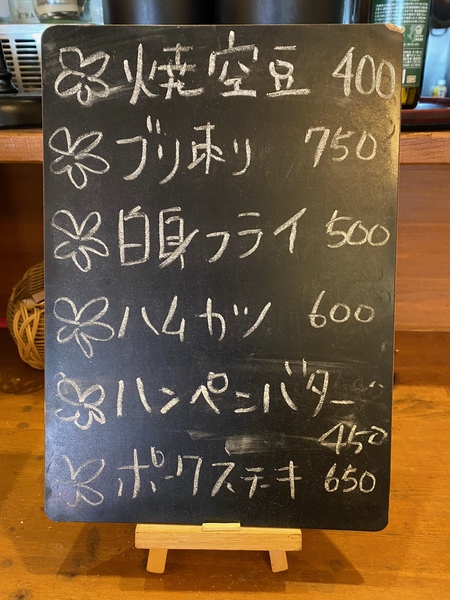 焼空豆 400
ブリ刺り 750
白身フライ 500
ハムカツ 600
ハンペンバター
450
ポークステーキ 650